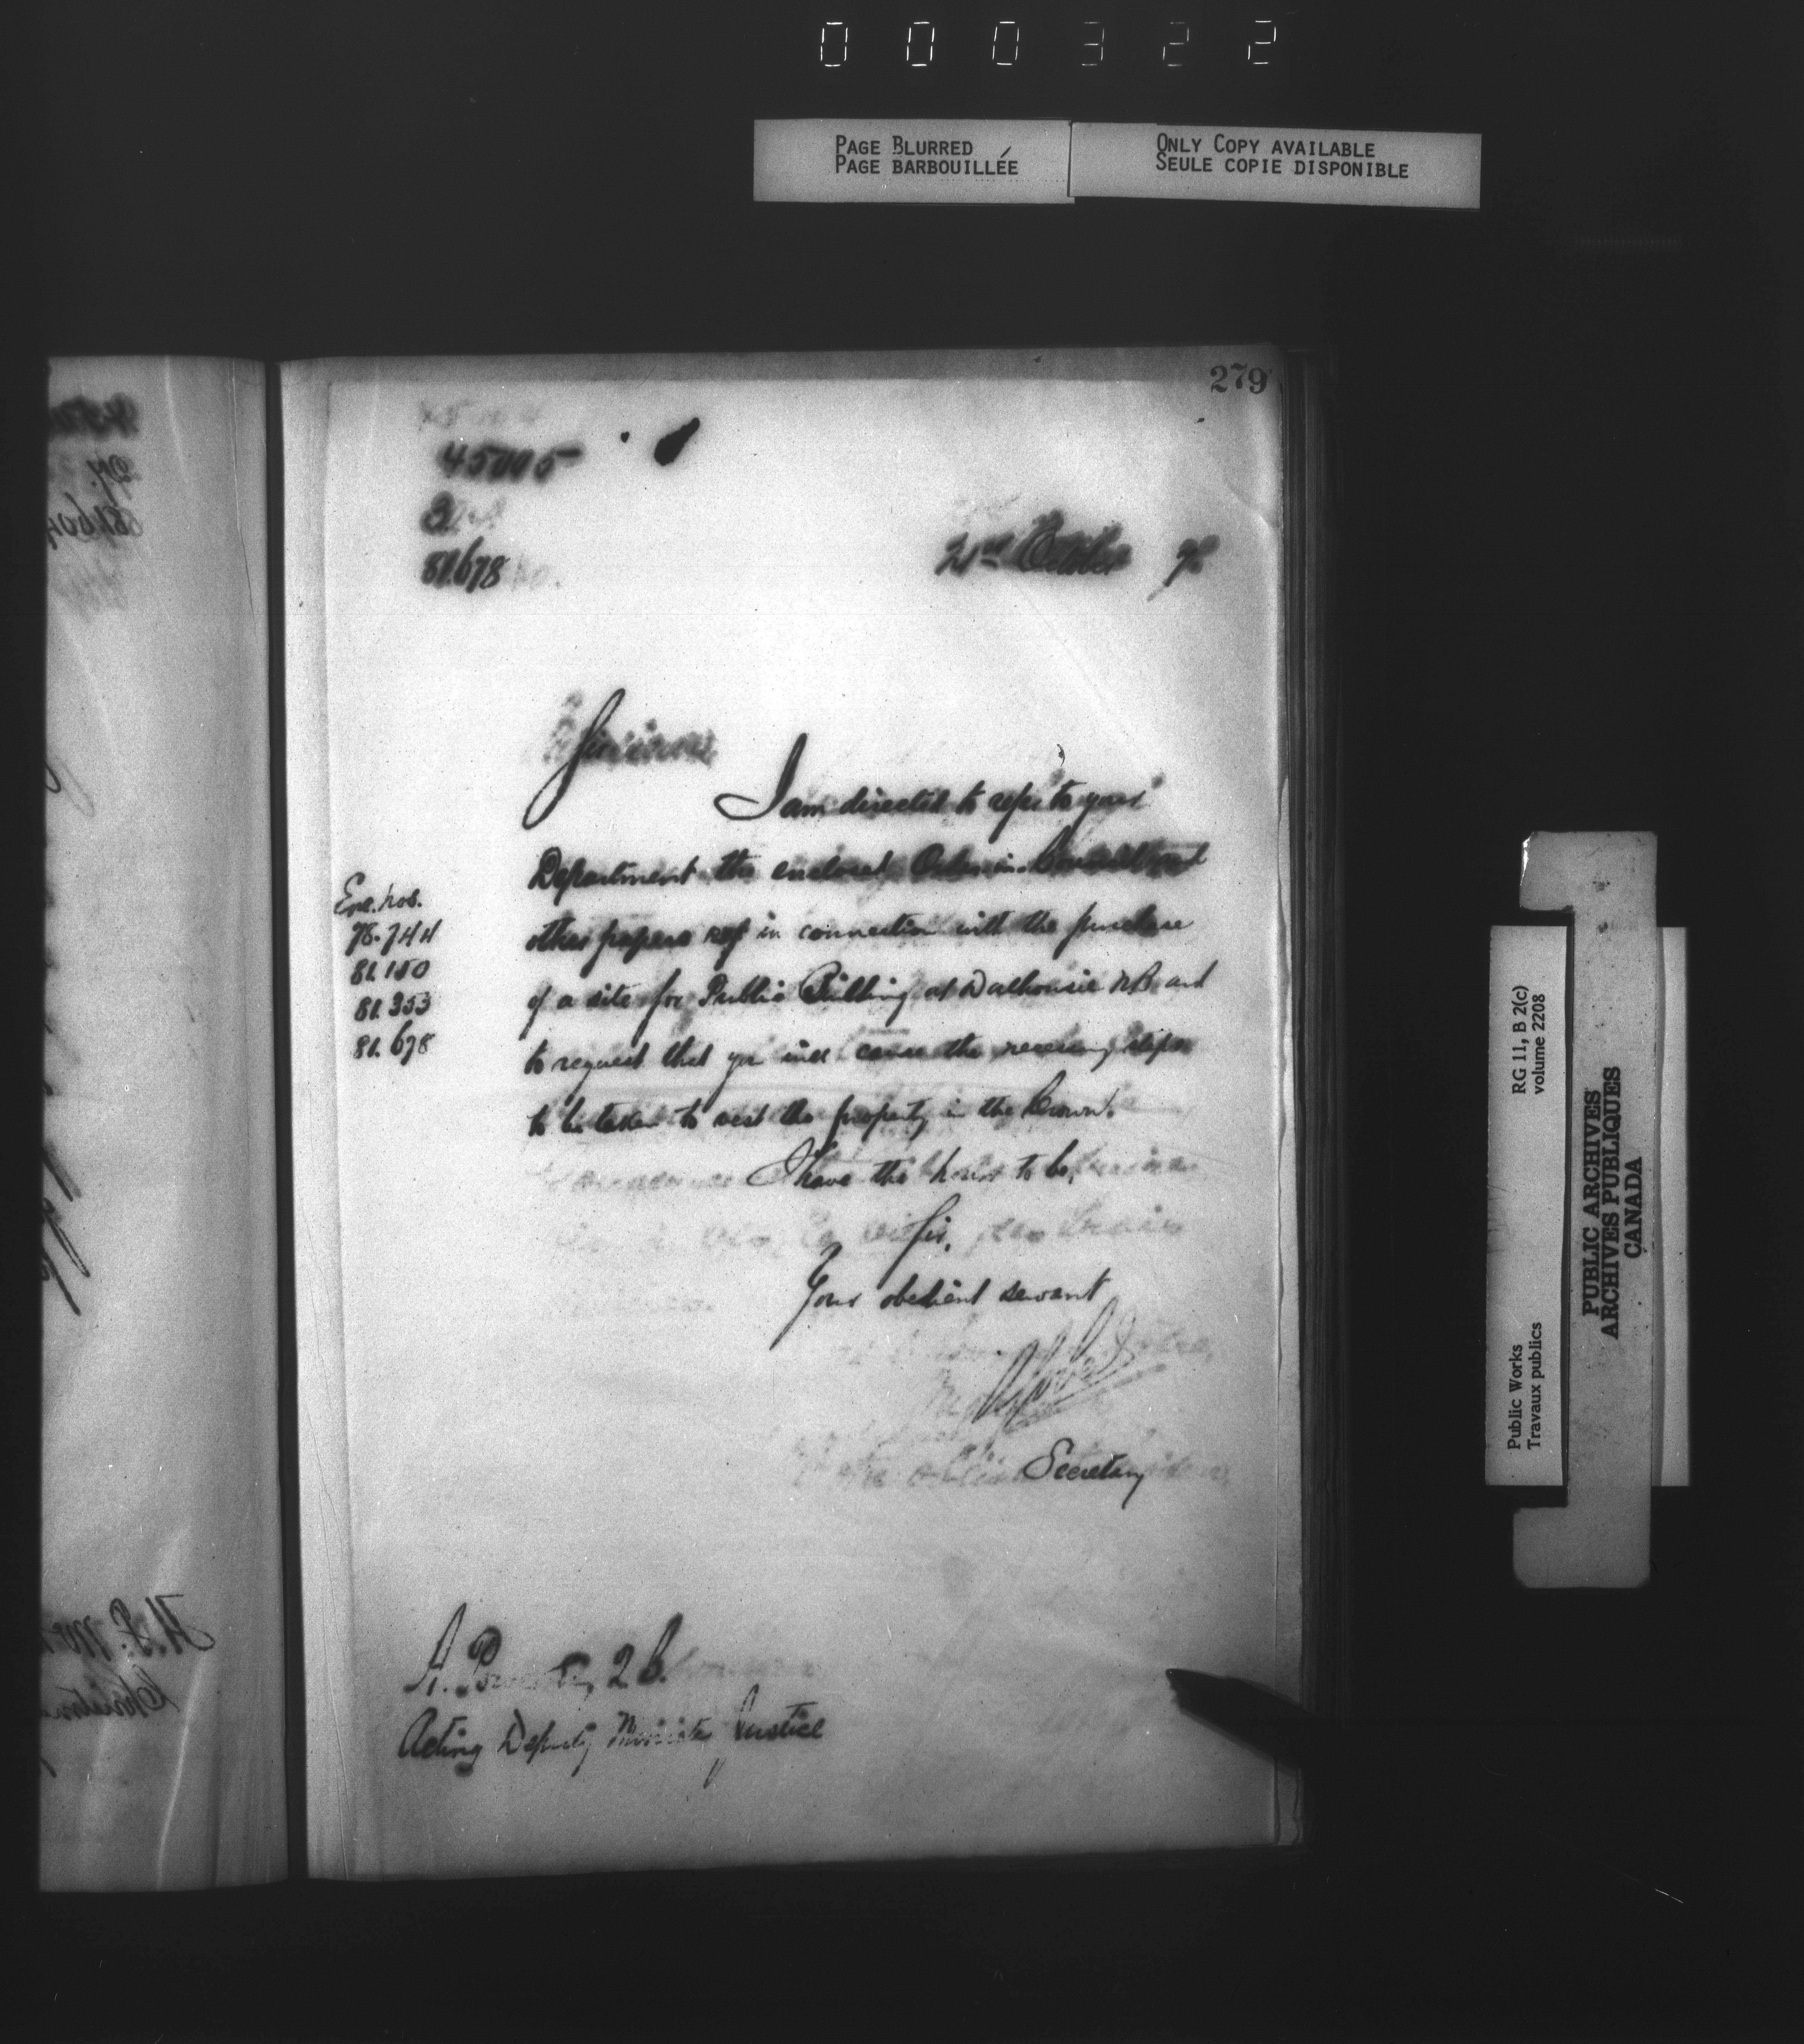 000322
PAGE BLURRED
PAGE BARBOUILLÉE
ONLY COPY AVAILABLE
SEULE COPIE DISPONIBLE
279
81.678
21st October
Sir
I am directed to refer to your
Department the enclosed Order in Council and
other papers in connection with the purchase
of a site for Public Building at Dalhousie NB and
to request that you will cause the necessary steps
to be taken to vest the property in the Crown.
I have the honor to be,
Sir,
Your obedient servant
Secretary
Enc. nos.
78.744
81.150
81.353
81.678
A. Power, Q.C.
Acting Deputy Minister Justice
RG 11, B 2(c)
volume 2208
Public Works
Travaux publics
PUBLIC ARCHIVES
ARCHIVES PUBLIQUES
CANADA